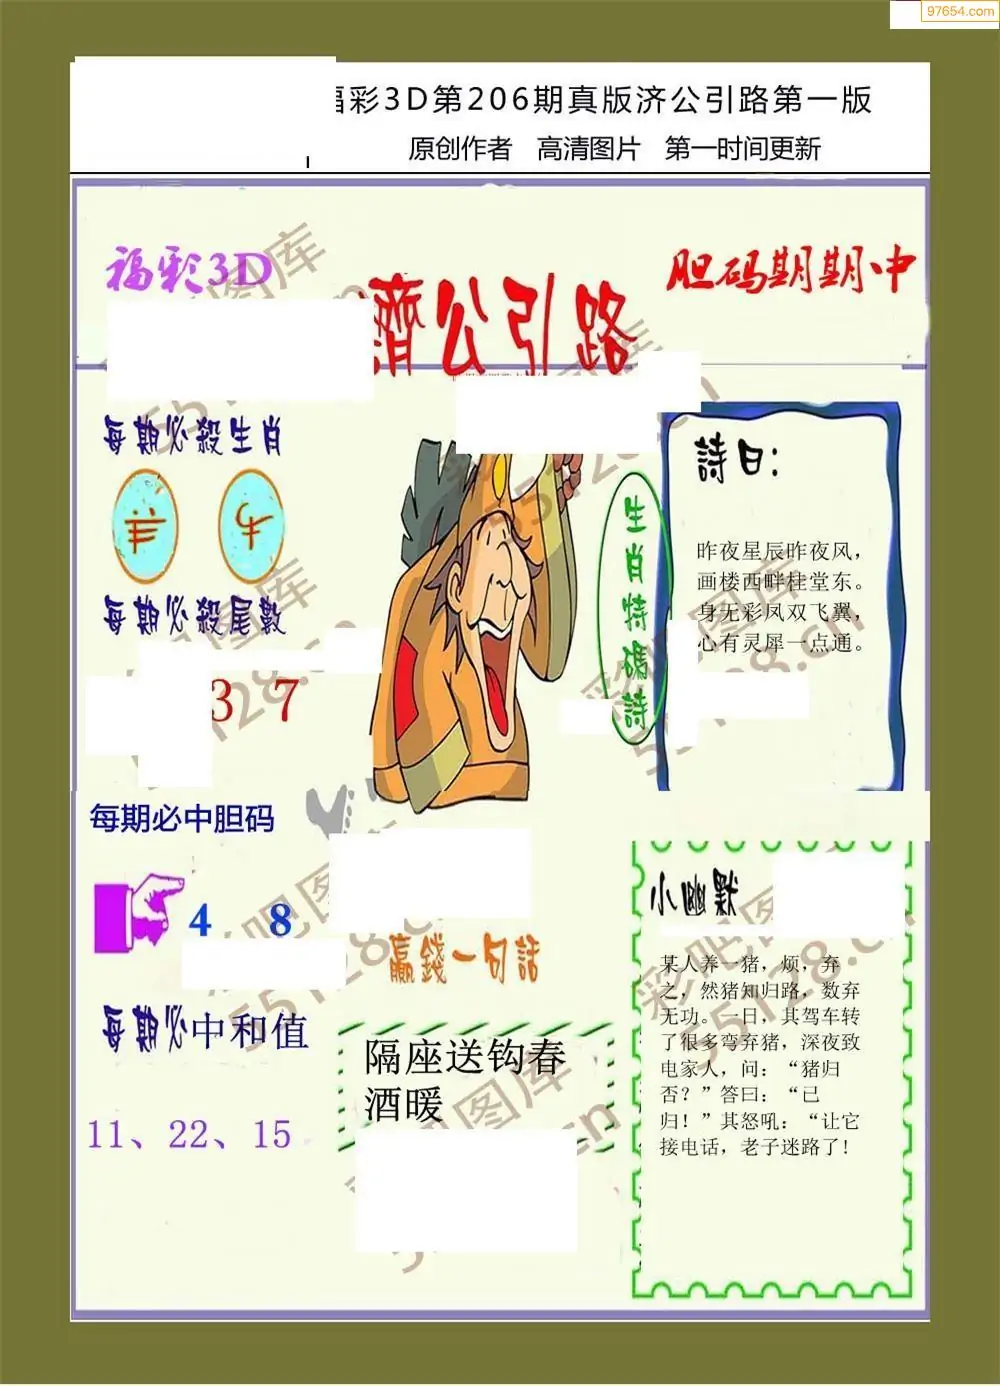 97654.com
福彩3D第206期真版济公引路第一版
原创作者 高清图片 第一时间更新
福彩3D
胆码期期中
濟公引路
每期必殺生肖
羊 牛
每期必殺尾數
3 7
生肖特碼詩
詩曰：
昨夜星辰昨夜风，
画楼西畔桂堂东。
身无彩凤双飞翼，
心有灵犀一点通。
每期必中胆码
4 8
每期必中和值
11、22、15
赢錢一句話
隔座送钩春
酒暖
小幽默
某人养一猪，烦，弃
之，然猪知归路，数弃
无功。一日，其驾车转
了很多弯弃猪，深夜致
电家人，问：“猪归
否？”答曰：“已
归！”其怒吼：“让它
接电话，老子迷路了！
彩吧图库
55128.cn